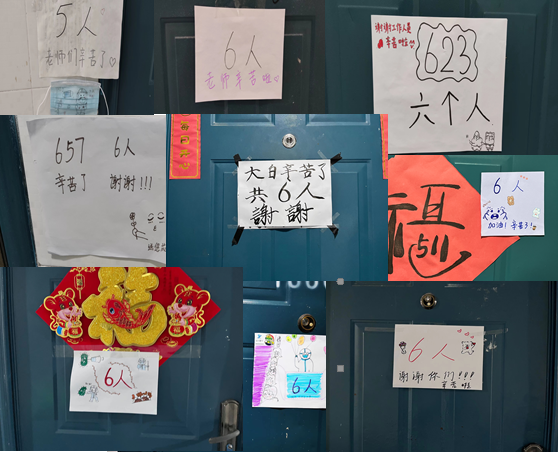 5人
老师们辛苦了
6人
老师辛苦啦
谢谢工作人员
辛苦啦!!
623
六个人
657 6人
辛苦了 謝謝!!!
大白辛苦了
共6人
謝謝
福
511
6人
加油!辛苦了!
6人
6人
6人
谢谢你们!!!
辛苦啦